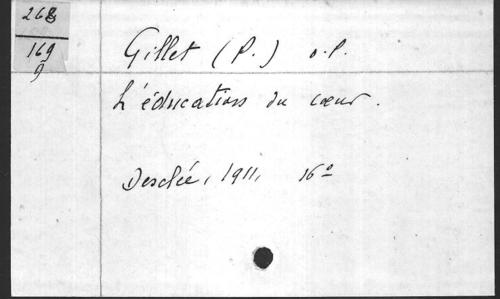 268
169
9
Gillet (P.) o.p.
L'éducation du cœur.
Desclée, 1911, 16°